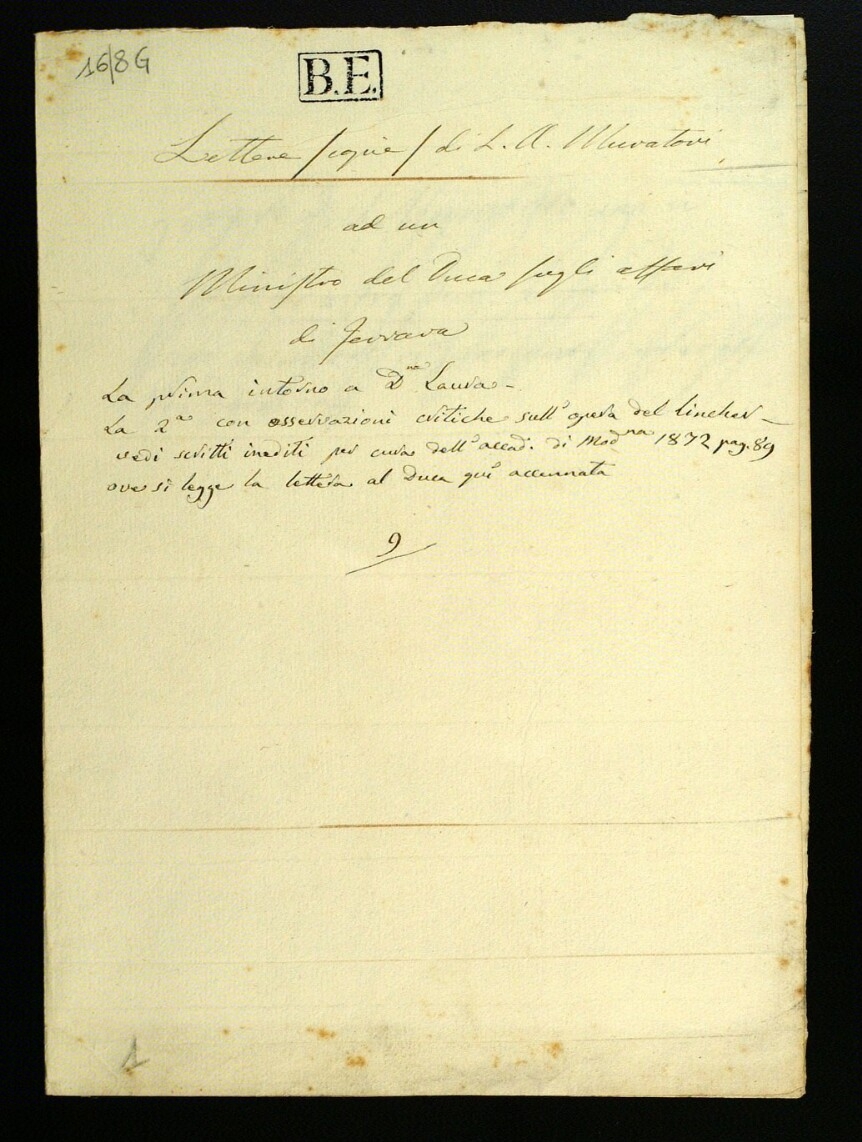 16/8G
B.E.
Lettere /copie/ di L. A. Muratori
ad un
Ministro del Duca sugli affari
di Ferrara
La prima intorno a D.na Laura -
La 2a con osservazioni critiche sull'opera del Lincker -
vedi scritti inediti per cura dell'accad. di Modna 1872 pag. 89
ove si legge la lettera al Duca qui accennata
9
1